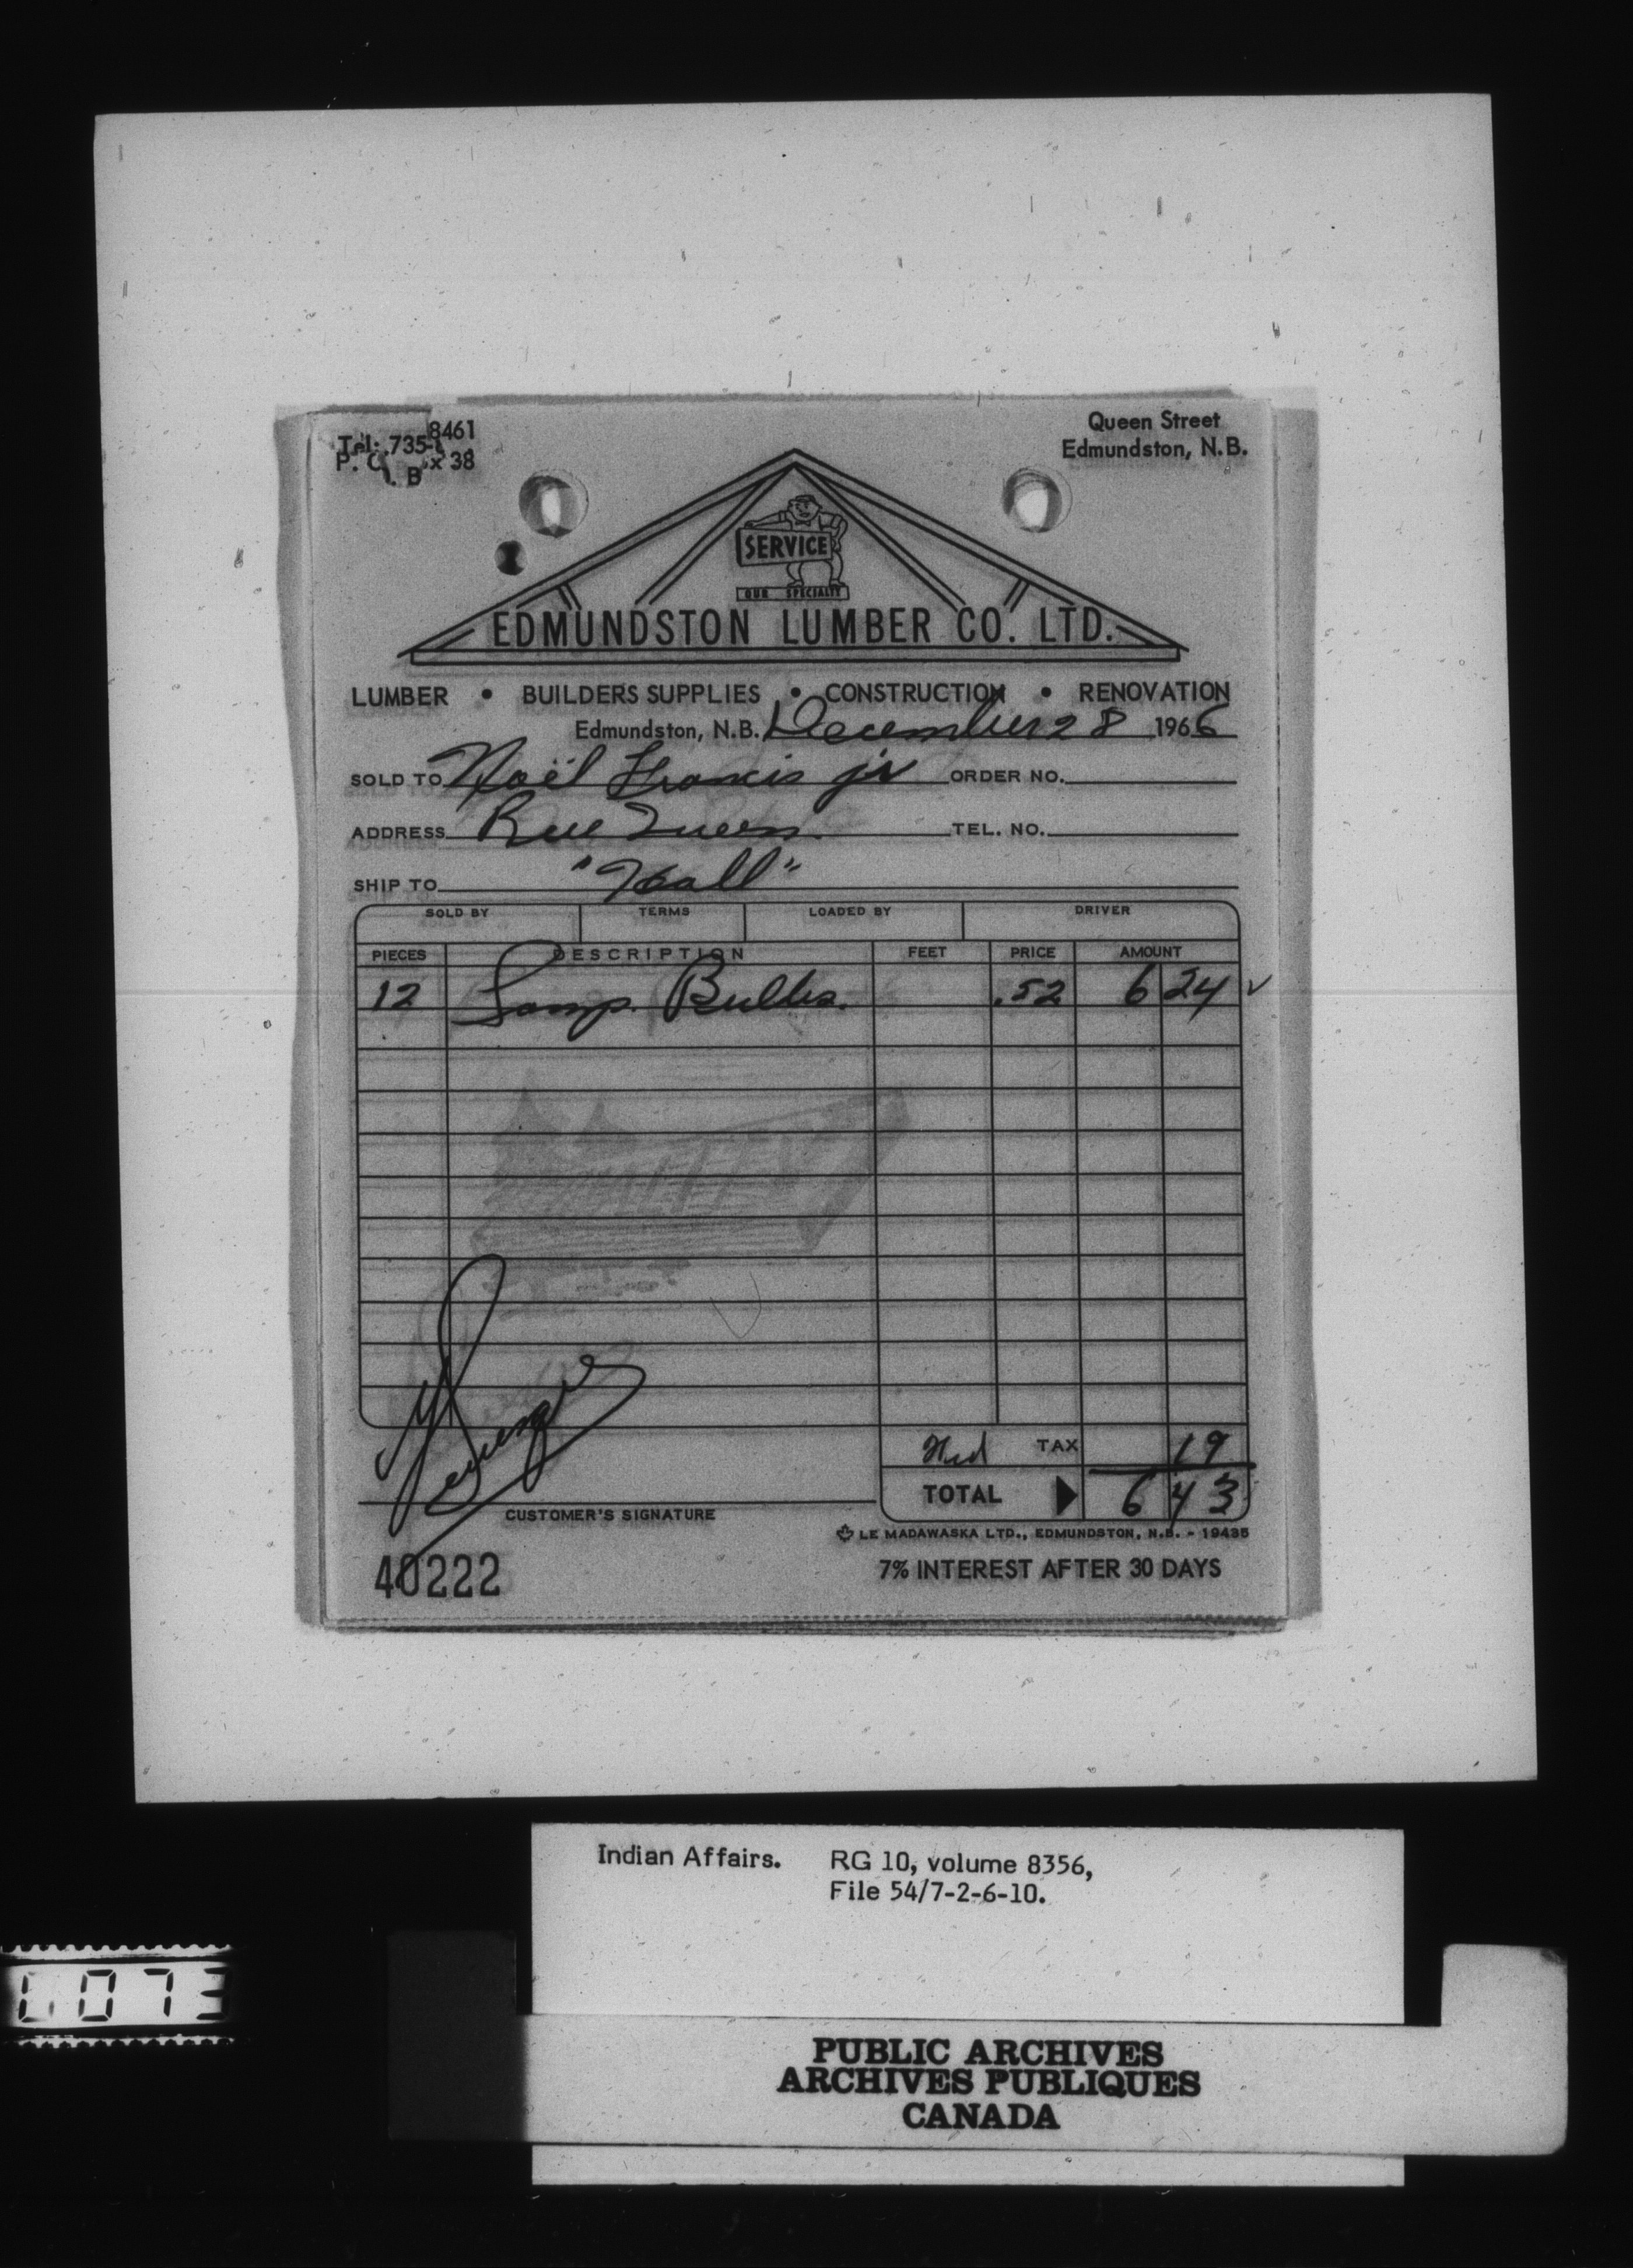 Tel: 735-8461
P. O. Box 38
Queen Street
Edmundston, N.B.
SERVICE
OUR SPECIALTY
EDMUNDSTON LUMBER CO. LTD.
LUMBER • BUILDERS SUPPLIES • CONSTRUCTION • RENOVATION
Edmundston, N.B. December 28 1966
SOLD TO Noël Francis jr ORDER NO.
ADDRESS Rue Queen. TEL. NO.
SHIP TO "Hall"
SOLD BY TERMS LOADED BY DRIVER
PIECES DESCRIPTION FEET PRICE AMOUNT
12 Lamp. Bulbs. .52 6 24 ✓
TAX 19
TOTAL 6 43
CUSTOMER'S SIGNATURE
LE MADAWASKA LTD., EDMUNDSTON, N.B. - 19435
40222
7% INTEREST AFTER 30 DAYS
Indian Affairs. RG 10, volume 8356,
File 54/7-2-6-10.
073
PUBLIC ARCHIVES
ARCHIVES PUBLIQUES
CANADA